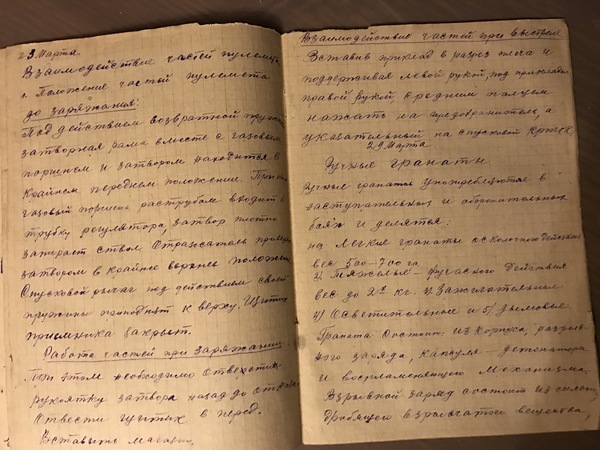 23 Марта
Взаимодействие частей пулемё
1. Положение частей пулемета
до заряжания:
Под действием возвратной пружин
затворная рама вместе с газовым
поршнем и затвором находится в
крайнем переднем положение. При
газовый поршень раструбом входит в
трубку регулятора, затвор плотно
запирает ствол. Отражатель
затвором в крайнее верхнее положен
Спусковой рычаг под действием своей
пружины приподнят к верху. Щиток
приемника закрыт.
Работа частей при заряжании
При этом необходимо отвести
рукоятку затвора назад до отказа
Отвести щиток в перед.
Вставить магазин
Взаимодействие частей при выстреле
Вставив приклад в разрез плеча и
поддерживая левой рукой, под приклад
правой рукой средним пальцем
нажать на предохранитель, а
указательный на спусковой крючек
29 Марта
Ручные гранаты
Ручные гранаты употребляются в
наступательных и оборонительных
боях и делятся:
на легкие гранаты осколочного действия
вес 500-700 гр
2/ Тяжелые - фугасного действия
вес до 2х кг. 3/ Зажигательные
4/ Осветительное и 5/ дымовые
Граната состоит: из корпуса, разрыв
ного заряда, капсуля-детонатора
и воспламеняющего механизма,
Взрывной заряд состоит из сильно
дробящего взрывчатого вещества,